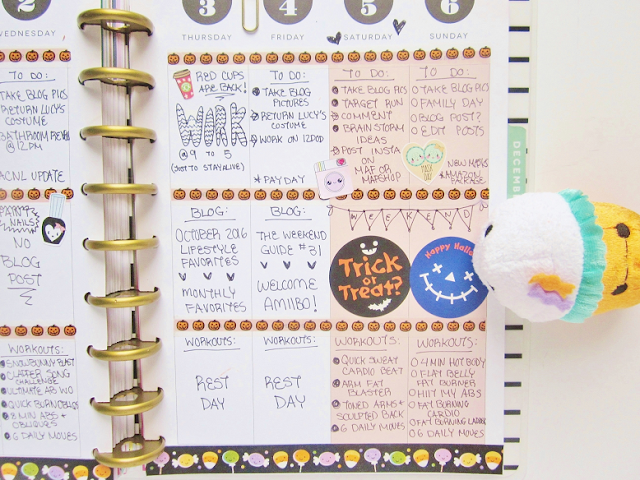 2
3
4
5
6
WEDNESDAY
THURSDAY
FRIDAY
SATURDAY
SUNDAY
TO DO:
TAKE BLOG PICS
RETURN LUCY'S
COSTUME
@ 12PM
ACNL UPDATE
NAILS
NO
BLOG
POST
WORKOUTS:
SNOWBUNNY BLAST
CLAPPER SONG
CHALLENGE
ULTIMATE AB WO
QUICK BURNOBLOS
8 MIN ABS +
OBLIQUES
6 DAILY MOVES
RED CUPS
ARE BACK!
WORK
@ 9 TO 5
(JUST TO STAY ALIVE)
BLOG:
OCTOBER 2016
LIFESTYLE
FAVORITES
MONTHLY
FAVORITES
WORKOUTS:
REST
DAY
TO DO:
TAKE BLOG
PICTURES
RETURN LUCY'S
COSTUME
WORK ON 12DOD
* PAYDAY
BLOG:
THE WEEKEND
GUIDE #31
WELCOME
AMIIBO!
WORKOUTS:
REST
DAY
TO DO:
TAKE BLOG PICS
TARGET RUN
COMMENT
BRAINSTORM
IDEAS
POST INSTA
ON
MAF OR
MAPSHOP
WEEKEND
Trick
or
Treat?
WORKOUTS:
QUICK SWEAT
CARDIO BEAT
ARM FAT
BLASTER
TONED ARMS +
SCULPTED BACK
6 DAILY MOVES
TO DO:
TAKE BLOG PICS
FAMILY DAY
BLOG POST?
EDIT POSTS
NEW MAPS
AMAZON
PACKAGE
Happy Hallo
WORKOUTS:
4 MIN HOT BODY
FLAT BELLY
FAT BURNER
HIIT MY ABS
FAT BURNING
CARDIO
FAT BURNING LADDER
6 DAILY MOVES
DECEMBE